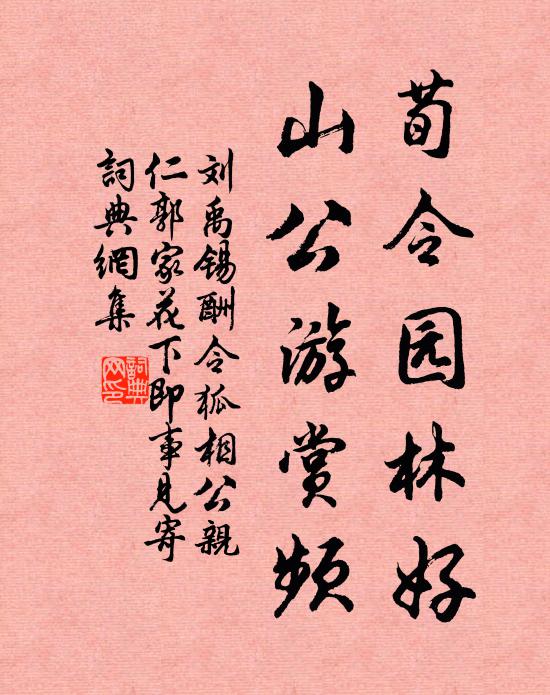 荀令园林好
山公游赏频
刘禹锡酬令狐相公親
仁郭家花下即事見寄
詞典網集